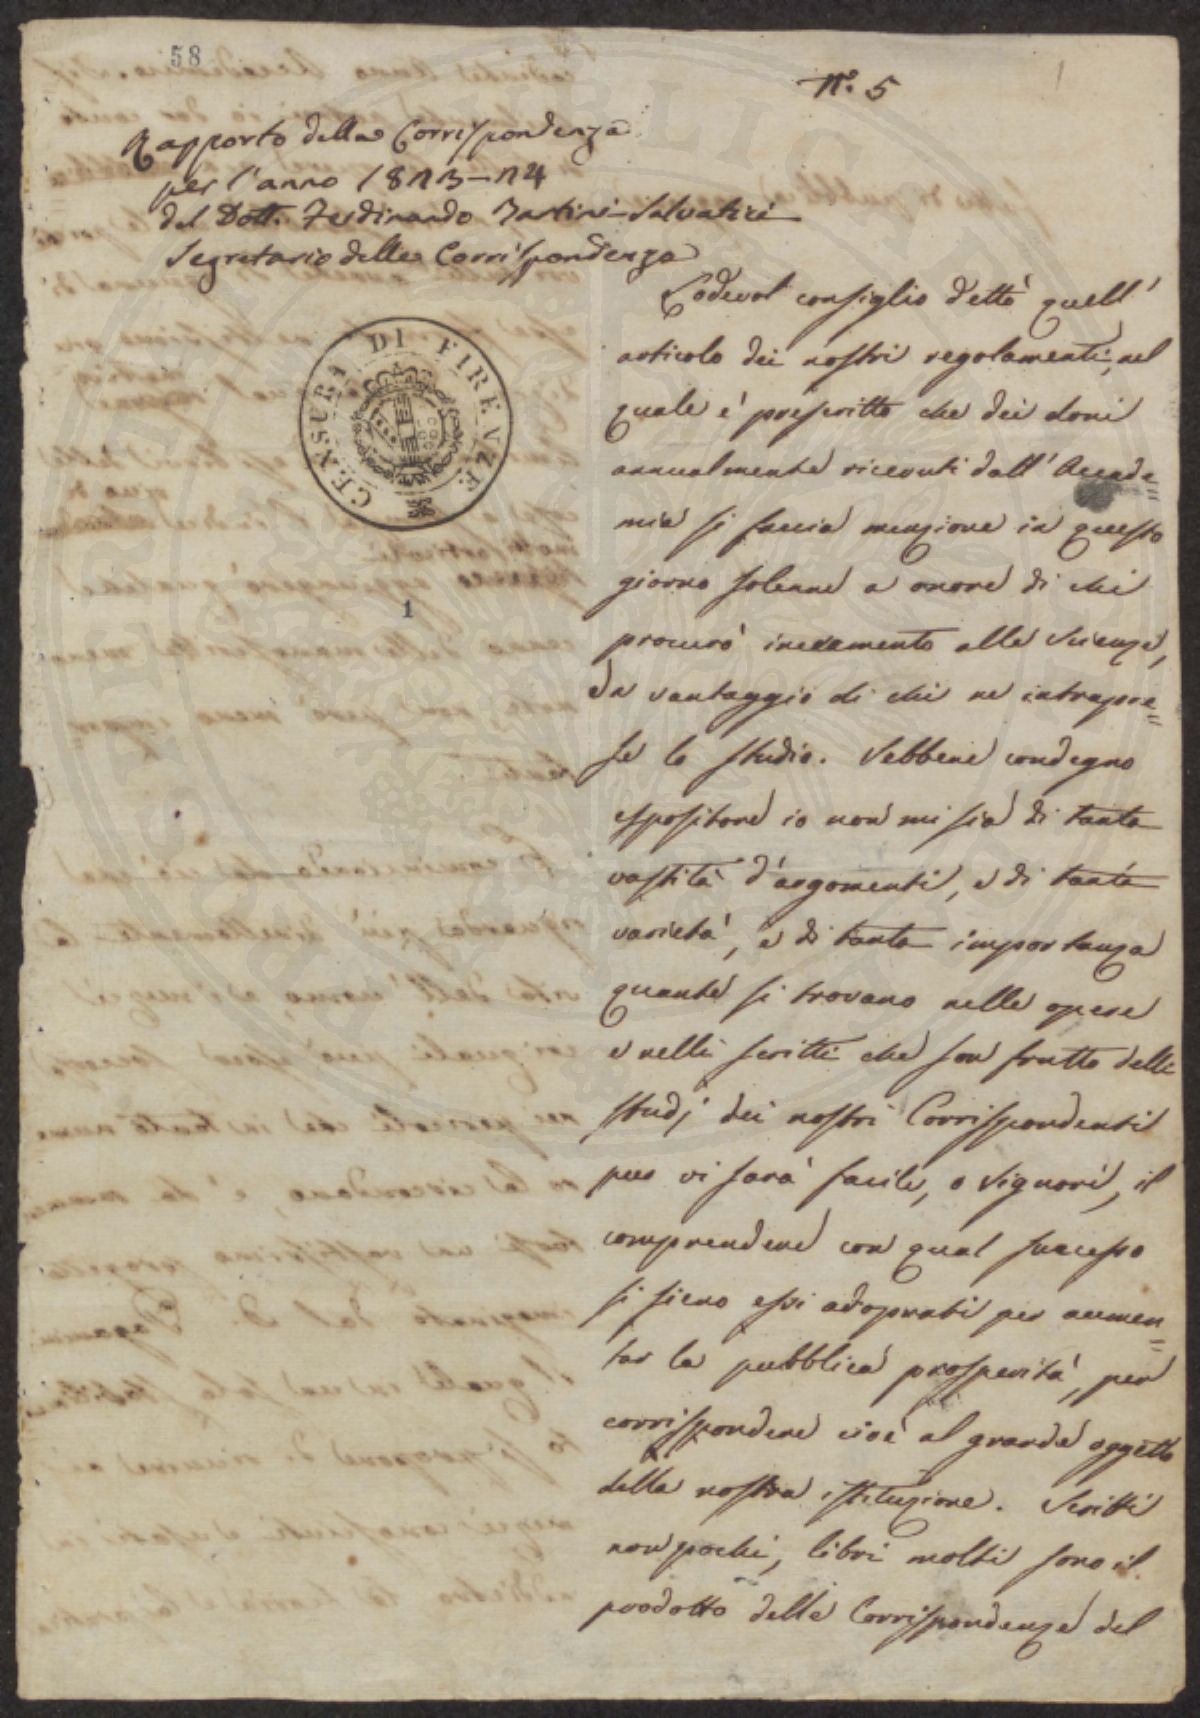 58
N.° 5
Rapporto della Corrispondenza
per l'anno 1823-24
del Dott. Ferdinando Tartini-Salvatici
Segretario delle Corrispondenze
CENSURA DI FIRENZE
1
Lodevol consiglio dettò quell'
articolo dei nostri regolamenti, nel
quale è prescritto che dei doni
annualmente ricevuti dall'Accade=
mia si faccia menzione in questo
giorno solenne a onore di chi
procurò incremento alle Scienze,
ed a vantaggio di chi ne intrapre=
se lo studio. Sebbene condegno
espositore io non mi sia di tanta
vastità d'argomenti, e di tanta
varietà, e di tanta importanza
quante si trovano nelle opere
e nelli scritti che son frutto delli
studj dei nostri Corrispondenti
pur vi sarà facile, o Signori, il
comprendere con qual successo
si sieno essi adoprati per aumen=
tar la pubblica prosperità, per
corrispondere cioè al grande oggetto
della nostra istituzione. Scritti
non pochi, libri molti sono il
prodotto delle Corrispondenze del